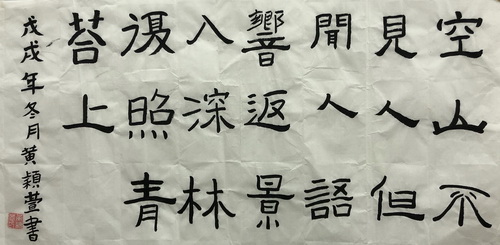 空山不
見人但
聞人語
響返景
入深林
復照青
苔上
戊戌年冬月黃穎萱書